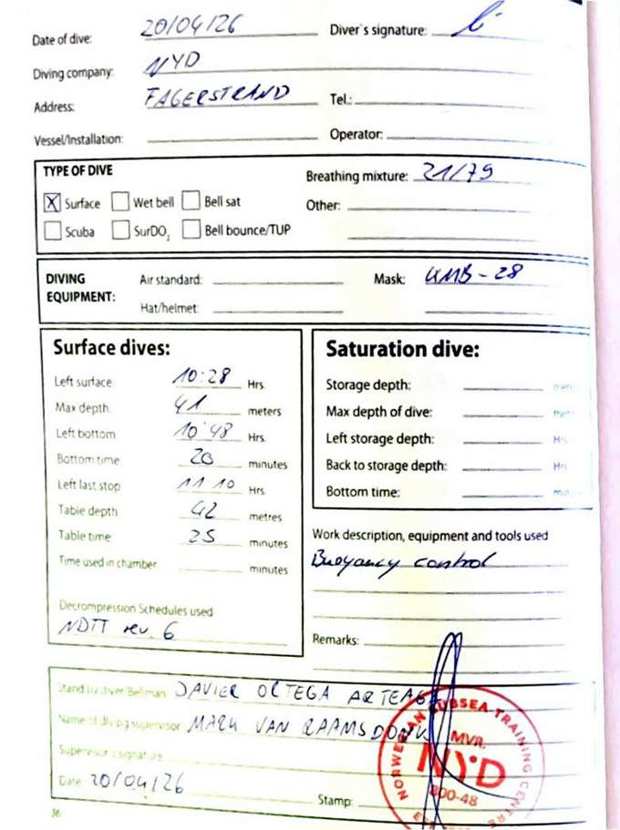 Date of dive: 20/04/26 Diver's signature:
Diving company: NYD
Address: FAGERSTRAND Tel.:
Vessel/Installation: Operator:
TYPE OF DIVE
Breathing mixture: 21/79
X Surface Wet bell Bell sat Other:
Scuba SurDO₂ Bell bounce/TUP
DIVING EQUIPMENT: Air standard: Mask: KMB-28
Hat/helmet:
Surface dives:
Left surface 10:28 Hrs.
Max depth 41 meters
Left bottom 10 48 Hrs.
Bottom time 20 minutes
Left last stop 11 10 Hrs.
Table depth 42 metres
Table time 25 minutes
Time used in chamber minutes
Decompression Schedules used
NDTT rev. 6
Saturation dive:
Storage depth:
Max depth of dive:
Left storage depth: Hrs
Back to storage depth: Hrs
Bottom time:
Work description, equipment and tools used
Buoyancy control
Remarks:
Stand by diver/Bellman JAVIER ORTEGA ARTEAGA
Name of diving supervisor MARK VAN RAAMSDONK
Supervisor's signature
Date 20/04/26 Stamp:
NORWEGIAN SUBSEA TRAINING CENTRE
MVR.
NYD
800-48
36